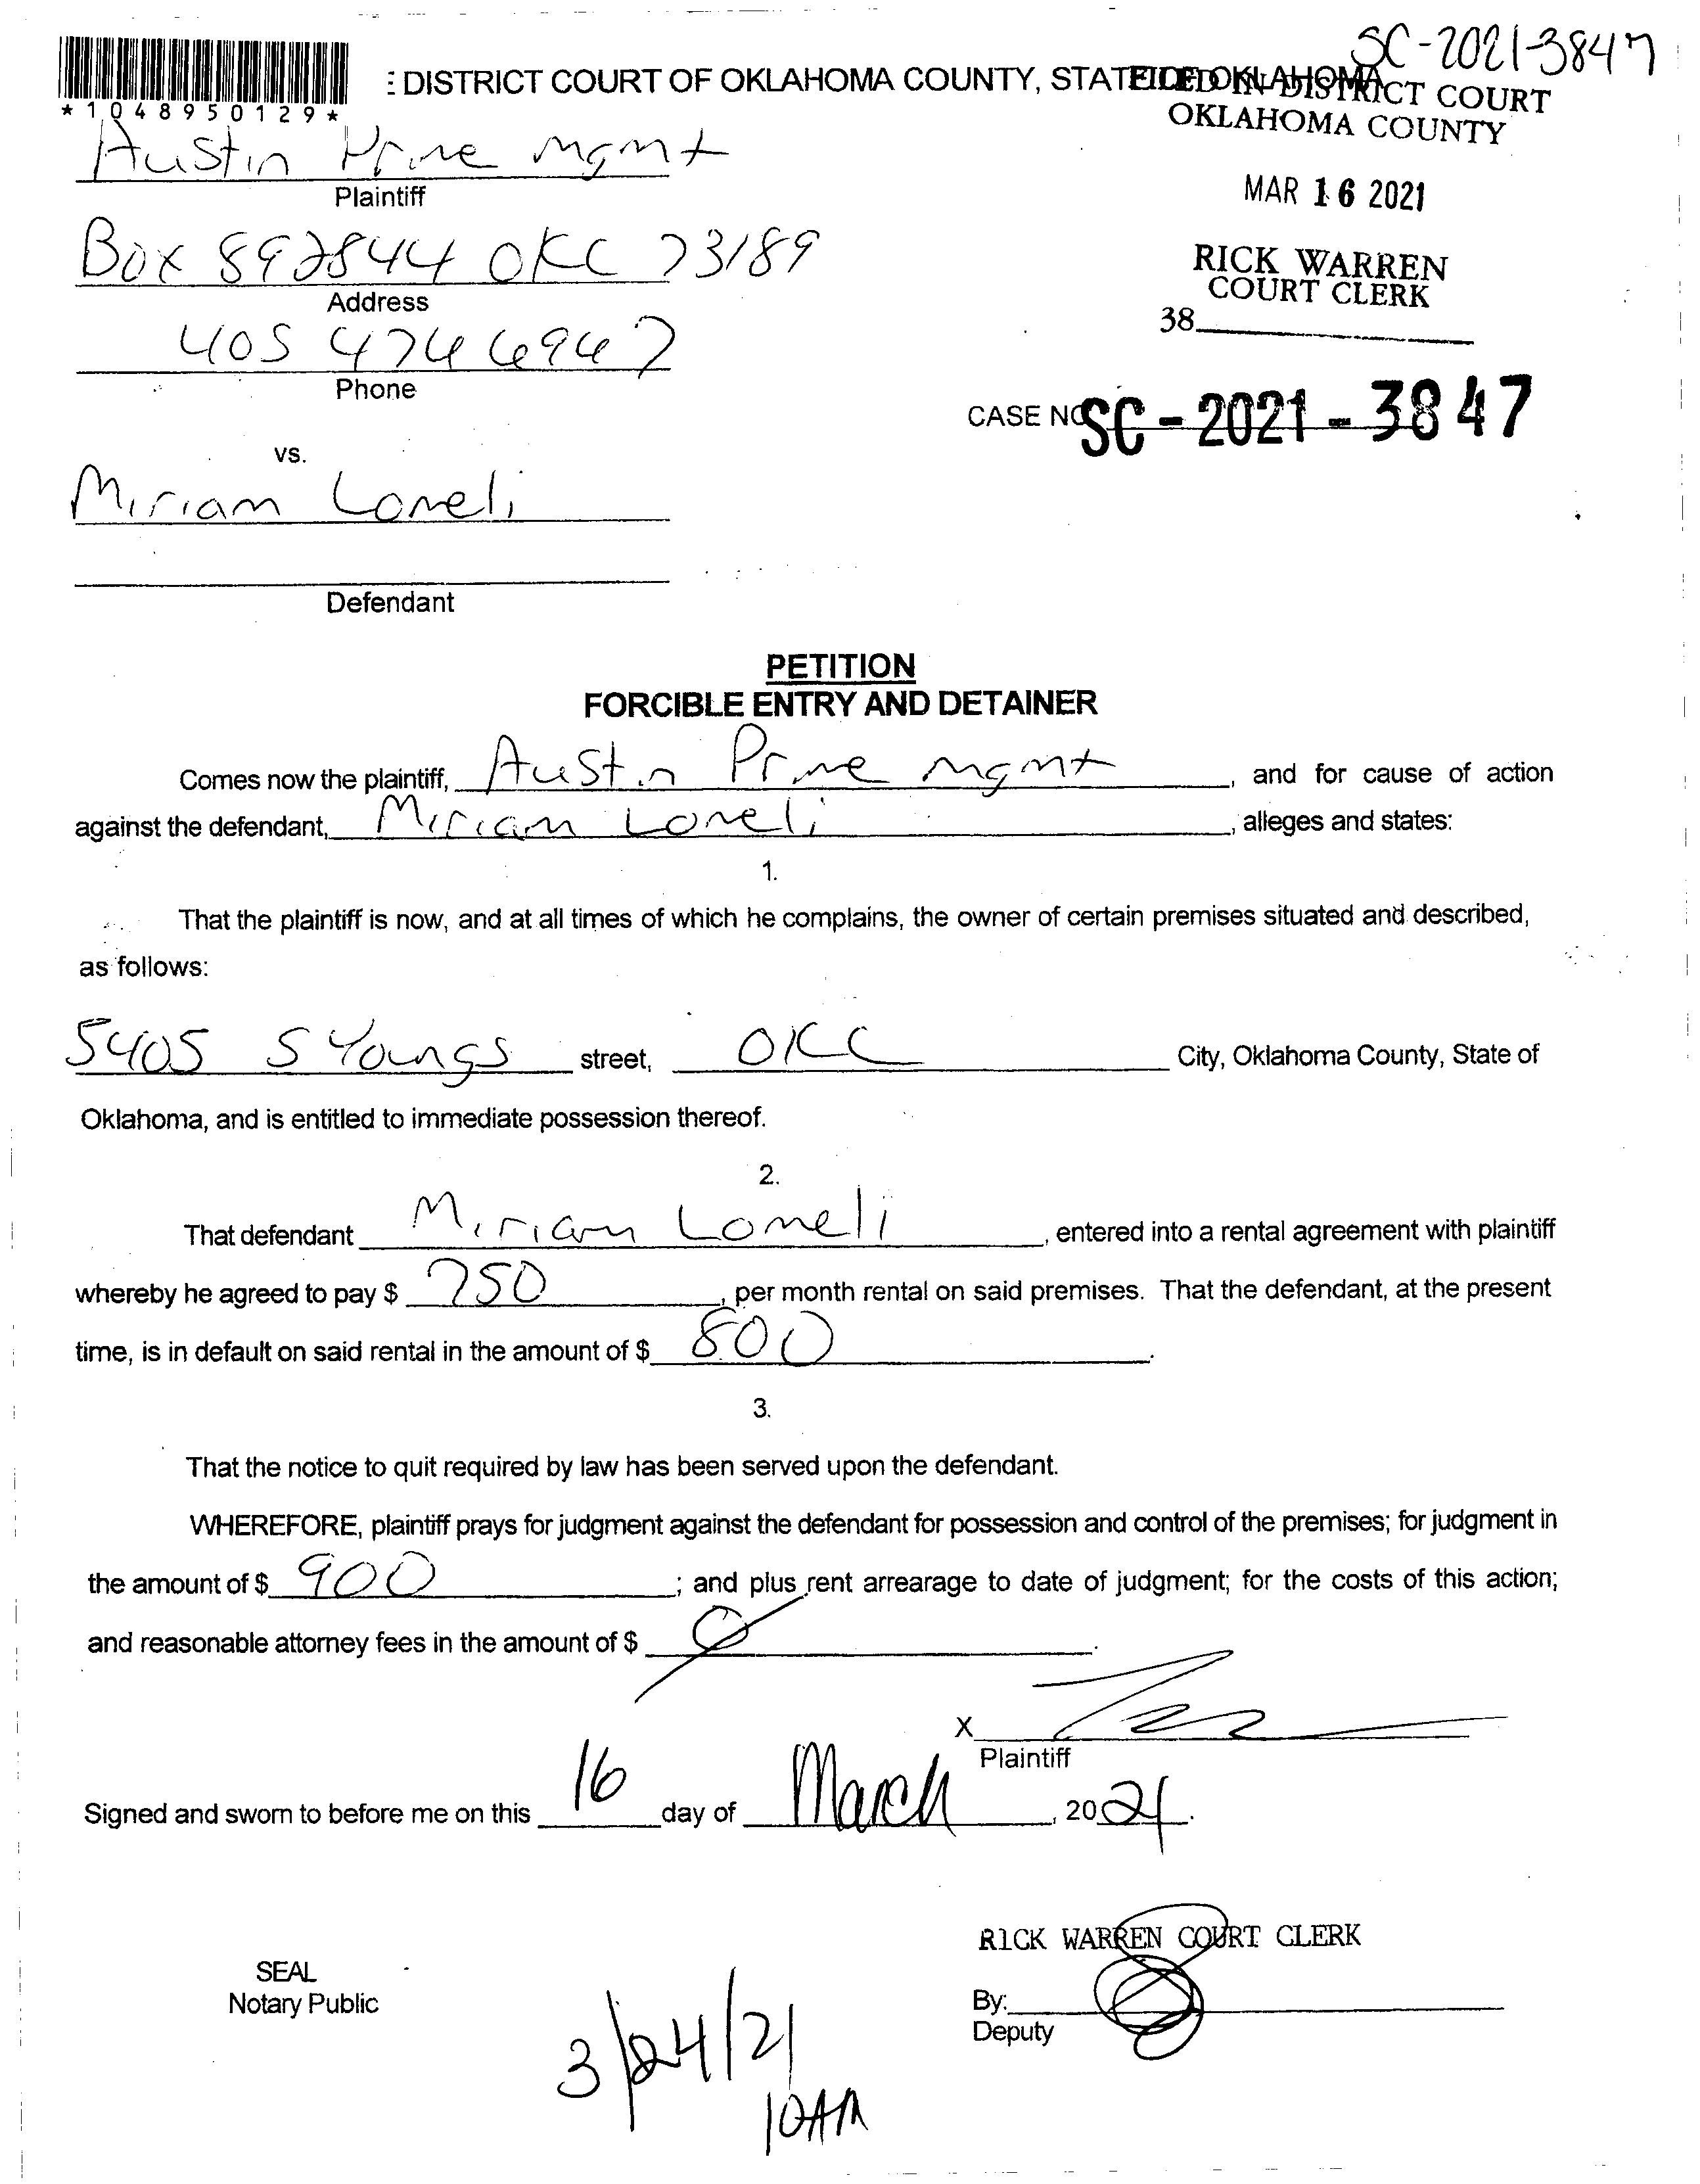 SC-2021-3847
: DISTRICT COURT OF OKLAHOMA COUNTY, STATE OF OKLAHOMA
FILED IN DISTRICT COURT
OKLAHOMA COUNTY
*1048950129*
Austin Prime Mgmt
Plaintiff
MAR 16 2021
Box 892844 OKC 73189
Address
RICK WARREN
COURT CLERK
38
405 474 6947
Phone
CASE NO SC-2021-3847
vs.
Miriam Lomeli
Defendant
PETITION
FORCIBLE ENTRY AND DETAINER
Comes now the plaintiff, Austin Prime Mgmt, and for cause of action
against the defendant, Miriam Lomeli, alleges and states:
1.
That the plaintiff is now, and at all times of which he complains, the owner of certain premises situated and described,
as follows:
5405 S Youngs street, OKC City, Oklahoma County, State of
Oklahoma, and is entitled to immediate possession thereof.
2.
That defendant Miriam Lomeli, entered into a rental agreement with plaintiff
whereby he agreed to pay $ 750, per month rental on said premises. That the defendant, at the present
time, is in default on said rental in the amount of $ 800.
3.
That the notice to quit required by law has been served upon the defendant.
WHEREFORE, plaintiff prays for judgment against the defendant for possession and control of the premises; for judgment in
the amount of $ 900; and plus rent arrearage to date of judgment; for the costs of this action;
and reasonable attorney fees in the amount of $ 0.
X
Plaintiff
Signed and sworn to before me on this 16 day of March, 2021.
RICK WARREN COURT CLERK
SEAL
Notary Public
By:
Deputy
3/24/21
10AM